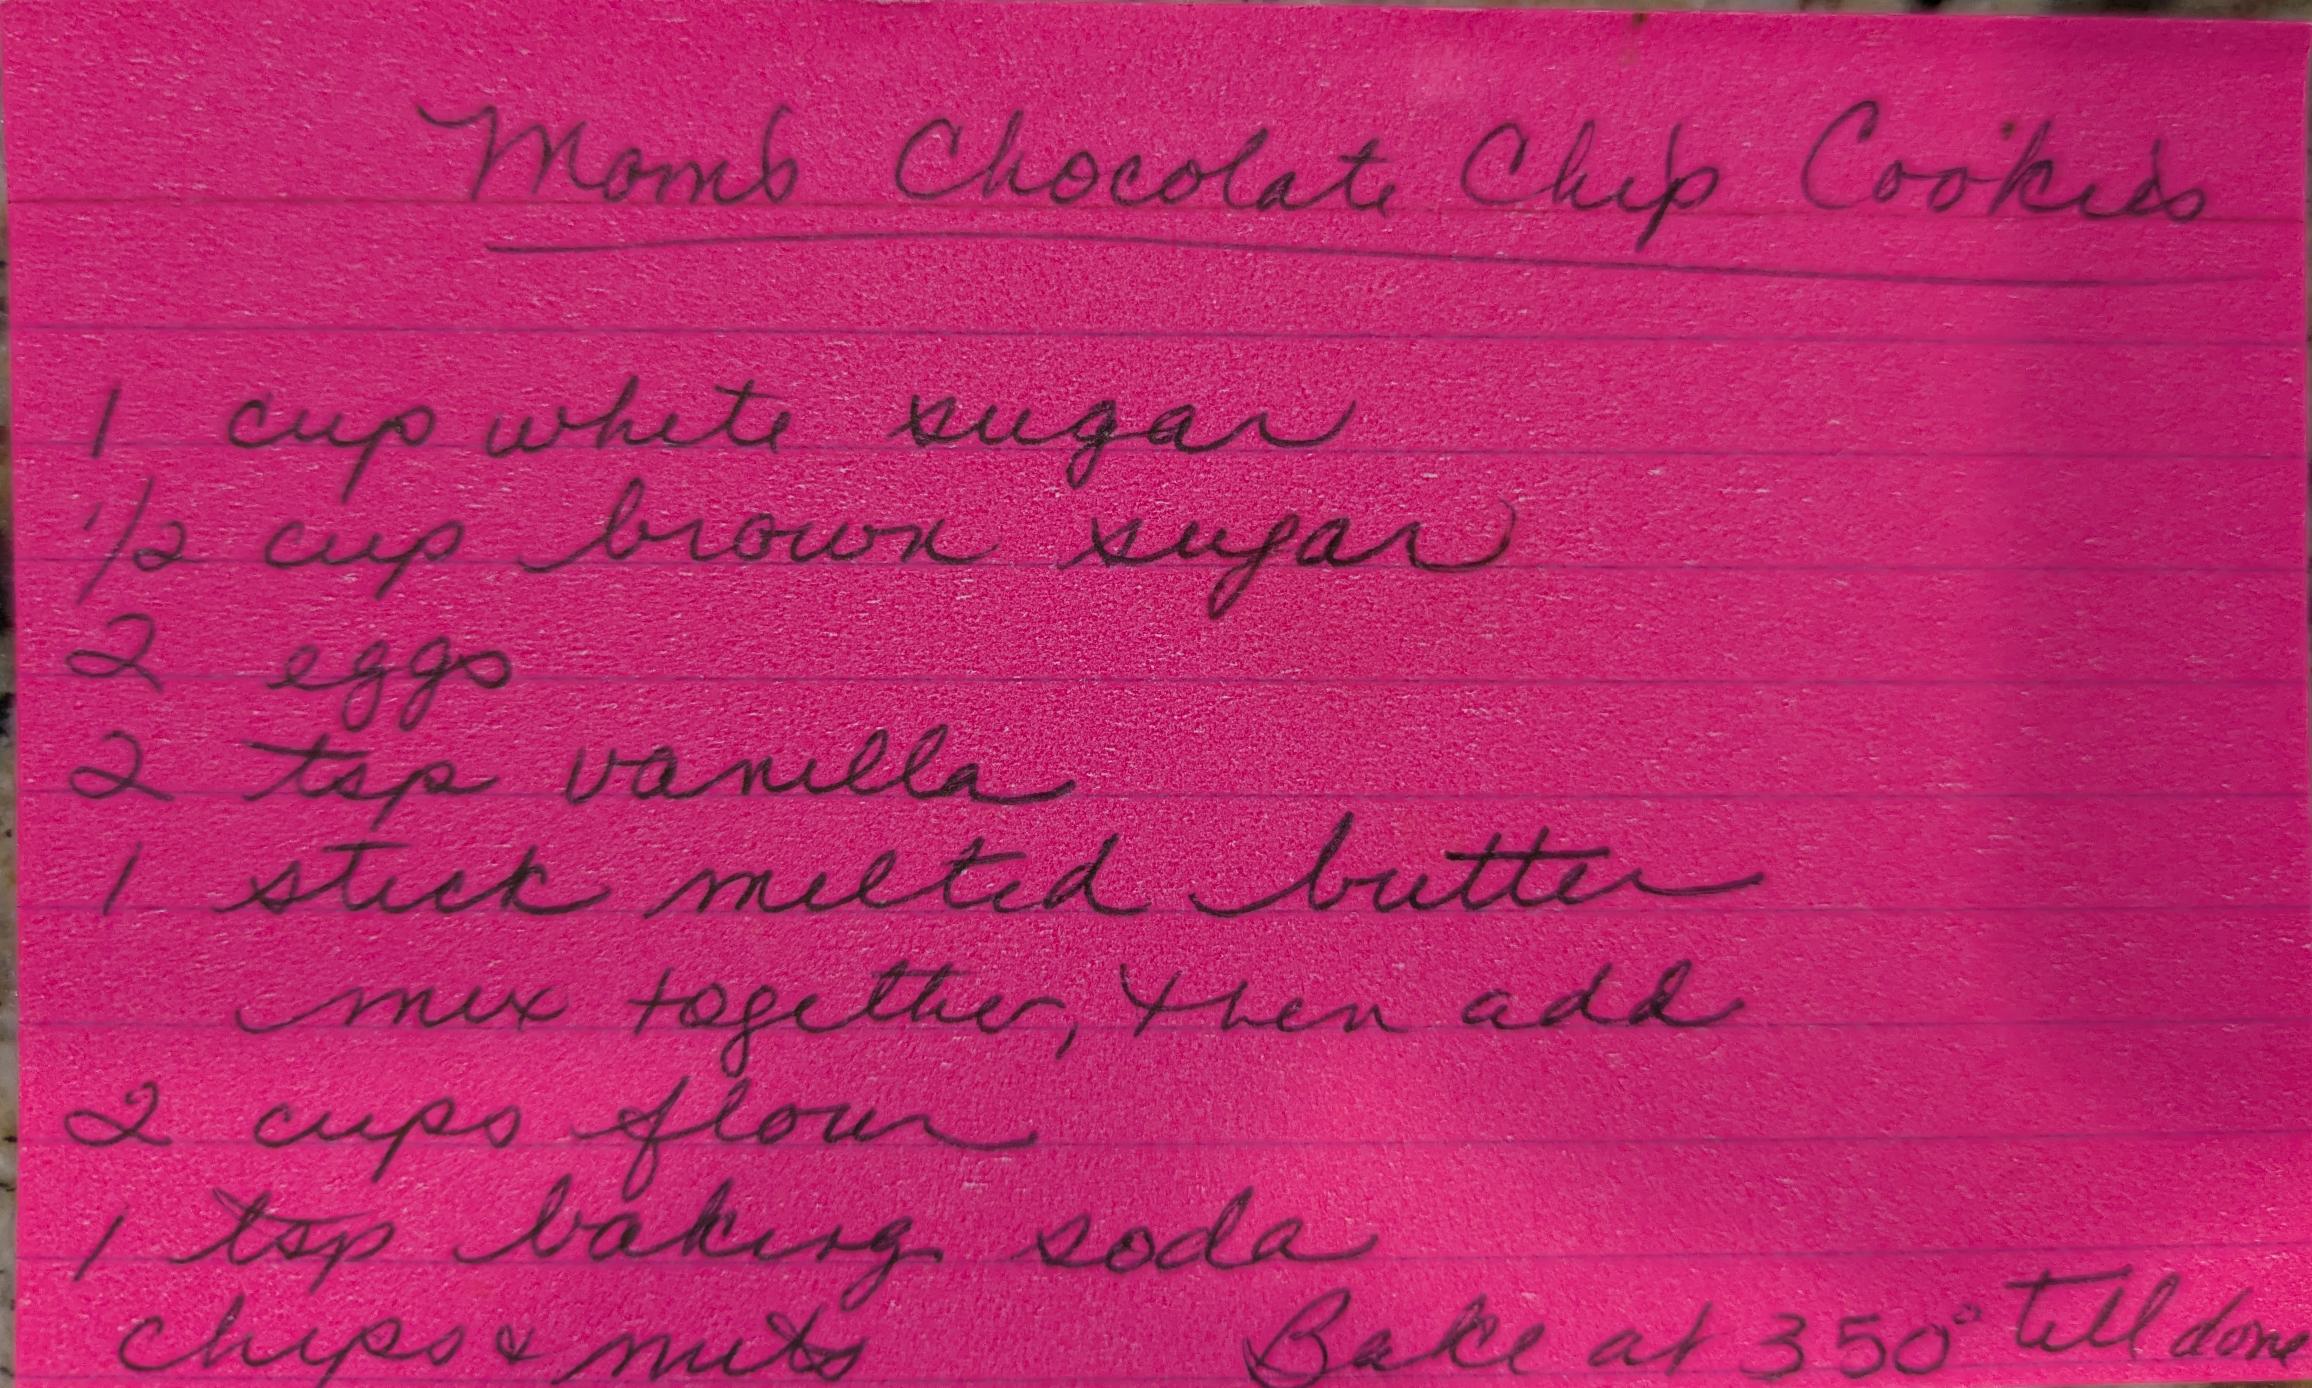 Mom's Chocolate Chip Cookies
1 cup white sugar
1/2 cup brown sugar
2 eggs
2 tsp vanilla
1 stick melted butter
mix together, then add
2 cups flour
1 tsp baking soda
chips & nuts Bake at 350° till done